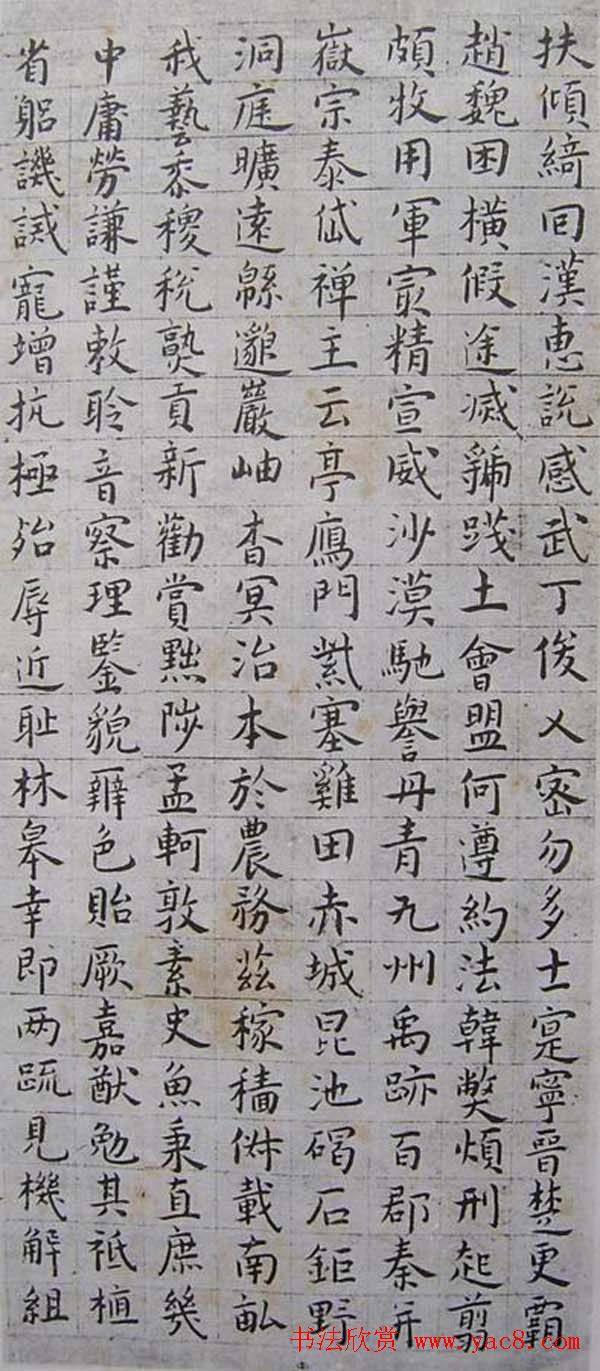 扶傾綺回漢恵說感武丁俊乂密勿多士寔寧晉楚更霸
趙魏困橫假途滅虢踐土會盟何遵約法韓弊煩刑起剪
頗牧用軍冣精宣威沙漠馳譽丹青九州禹跡百郡秦并
嶽宗泰岱禪主云亭鴈門紫塞雞田赤城昆池碣石鉅野
洞庭曠遠緜邈巖岫杳冥治本於農務茲稼穡俶載南畝
我藝黍稷稅熟貢新勸賞黜陟孟軻敦素史魚秉直庶幾
中庸勞謙謹敕聆音察理鑒貌辨色貽厥嘉猷勉其祗植
省躬譏誡寵增抗極殆辱近耻林皋幸即两疏見機解組
书法欣赏 www.yac8.com